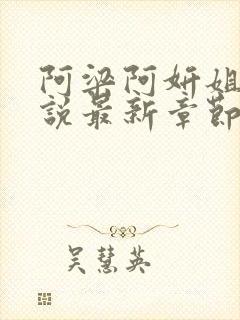 阿梁阿妍姐
說最新章節
吳慧英